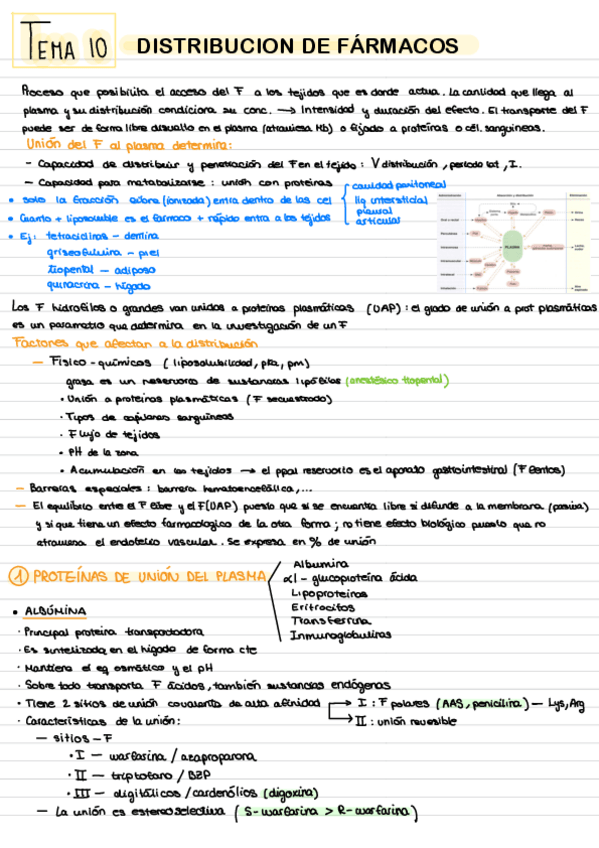 TEMA 10 DISTRIBUCION DE FÁRMACOS
Proceso que posibilita el acceso del F a los tejidos que es donde actua. La cantidad que llega al
plasma y su distribución condiciona su conc. → Intensidad y duración del efecto. El transporte del F
puede ser de forma libre disuelto en el plasma (atraviesa Mb) o fijado a proteínas o cél. sanguineas.
Unión del F al plasma determina:
- Capacidad de distribuir y penetración del F en el tejido: V distribución, periodo lat, I.
- Capacidad para metabolizarse: unión con proteínas
• solo la fracción libre (ionizada) entra dentro de las cel
• Cuanto + liposoluble es el farmaco + rápido entra a los tejidos
cavidad peritoneal
liq intersticial
pleural
articular
• Ej: tetraciclinas - dentina
griseofulvina - piel
tiopental - adiposo
quinacrina - hígado
PLASMA
Los F hidrofilos o grandes van unidos a proteinas plasmáticas (UAP): el grado de unión a prot plasmáticas
es un parametro que determina en la investigación de un F
Factores que afectan a la distribución
- Fisico-químicos (liposolubilidad, pka, pm)
grasa es un reservorio de sustancias lipófilas (anestésico tiopental)
• Unión a proteinas plasmáticas (F secuestrado)
• Tipos de capilares sanguíneos
• Flujo de tejidos
• PH de la zona
• Acumulación en los tejidos → el ppal reservorio es el aparato gastrointestinal (F lentos)
- Barreras especiales: barrera hematoencefálica,...
- El equilibrio entre el F libre y el F(UAP) puesto que si se encuentra libre si difunde a la membrana (pasiva)
y si que tiene un efecto farmacologico de la otra forma; no tiene efecto biológico puesto que no
atraviesa el endotelio vascular. Se expresa en % de unión
① PROTEÍNAS DE UNIÓN DEL PLASMA
Albumina
α1 - glucoproteína ácida
Lipoproteinas
Eritrocitos
Transferrina
Inmunoglobulinas
• ALBÚMINA
· Principal proteina transportadora
· Es sintetizada en el hígado de forma cte
· Mantiene el eq osmótico y el pH
· Sobre todo transporta F ácidos, también sustancias endógenas
• Tiene 2 sitios de unión covalente de alta afinidad → I: F polares (AAS, penicilina) - Lys, Arg
→ II: unión reversible
· Características de la unión:
- sitios-F
• I - warfarina / azapropazona
• II - triptofano / BZP
• III - digitálicos / cardenólios (digoxina)
- La unión es estereoselectiva (S-warfarina > R-warfarina)